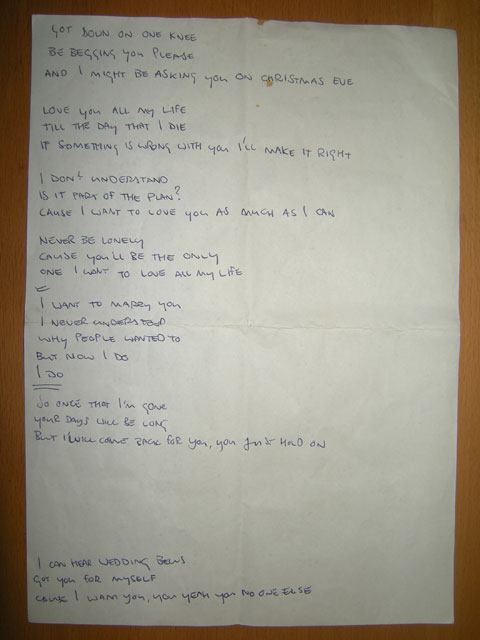 GOT DOWN ON ONE KNEE
BE BEGGING YOU PLEASE
AND I MIGHT BE ASKING YOU ON CHRISTMAS EVE
LOVE YOU ALL MY LIFE
TILL THE DAY THAT I DIE
IF SOMETHING IS WRONG WITH YOU I'LL MAKE IT RIGHT
I DON'T UNDERSTAND
IS IT PART OF THE PLAN?
CAUSE I WANT TO LOVE YOU AS MUCH AS I CAN
NEVER BE LONELY
CAUSE YOU'LL BE THE ONLY
ONE I WANT TO LOVE ALL MY LIFE
I WANT TO MARRY YOU
I NEVER UNDERSTOOD
WHY PEOPLE WANTED TO
BUT NOW I DO
I DO
SO ONCE THAT I'M GONE
YOUR DAYS WILL BE LONG
BUT I WILL COME BACK FOR YOU, YOU JUST HOLD ON
I CAN HEAR WEDDING BELLS
GOT YOU FOR MYSELF
CAUSE I WANT YOU, YOU YEAH YOU NO ONE ELSE